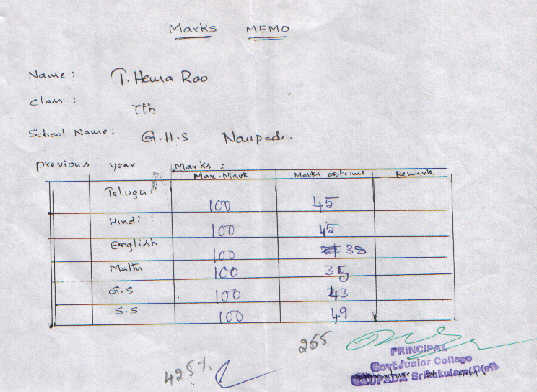 Marks MEMO
Name: T. Hema Rao
Class: 7th
School Name: G.H.S Naupada.
previous year Marks:
Max. Mark Marks obtained Remark
Telugu 100 45
Hindi 100 45
English 100 38
Maths 100 35
G.S 100 43
S.S 100 49
255
42.5%
PRINCIPAL
Govt Junior College
NAUPADA Srikakulam(Dist)